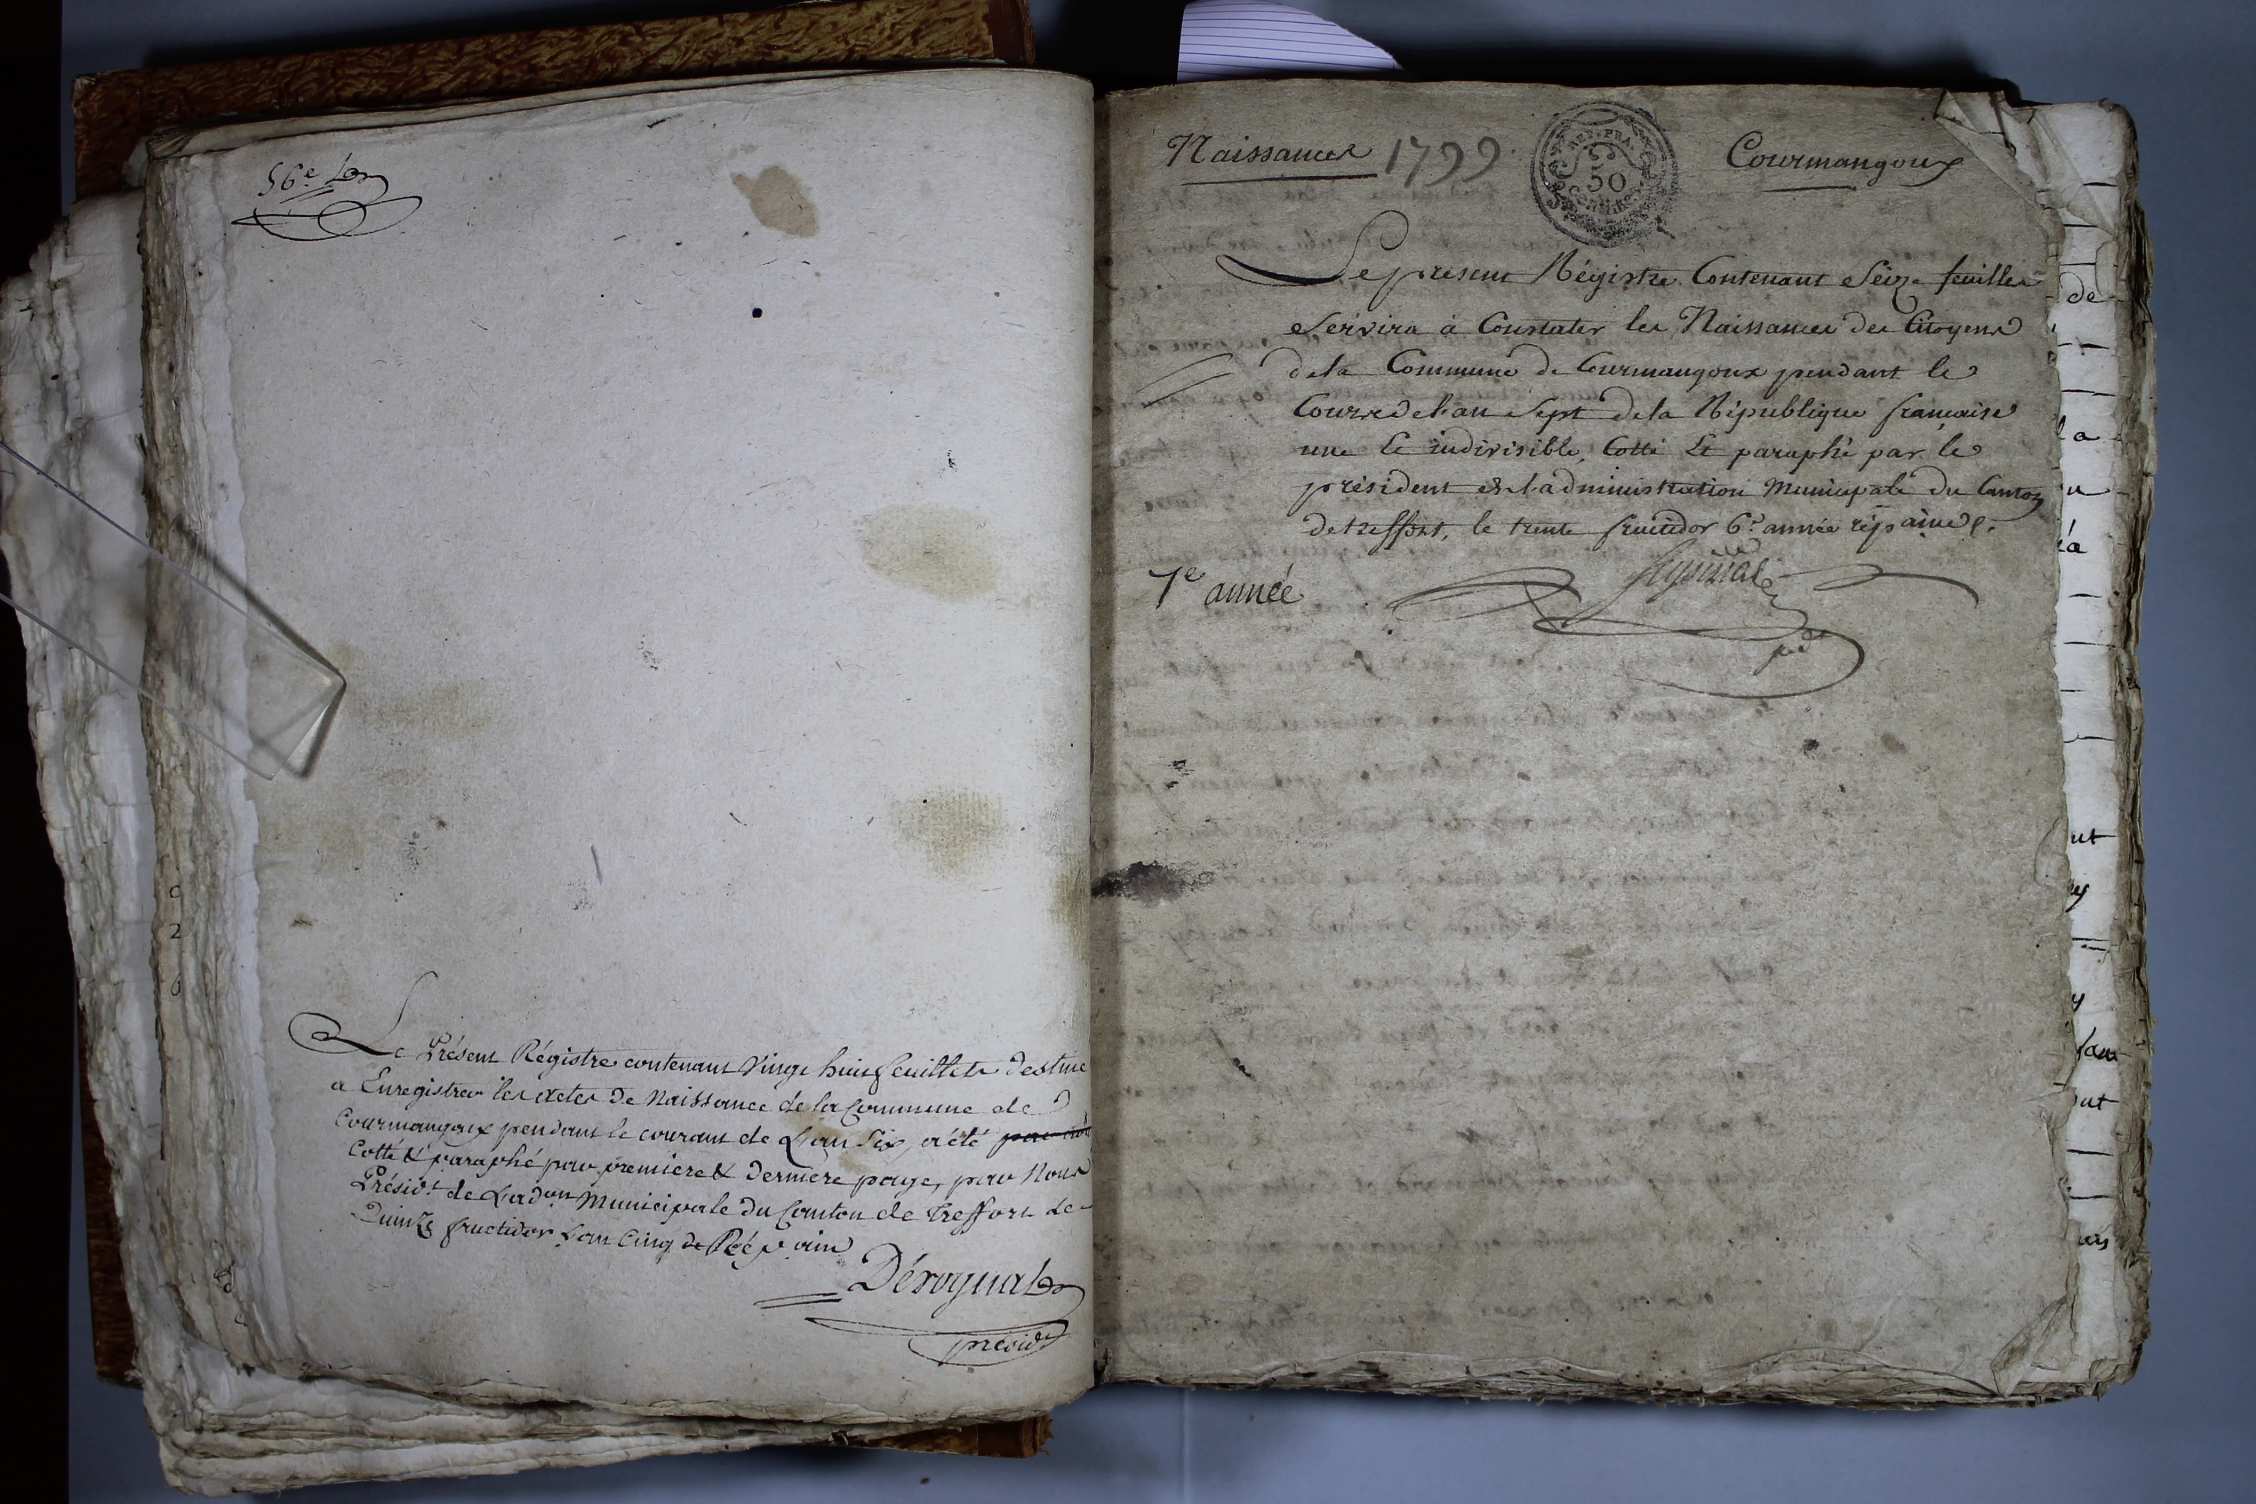 56e
Le Présent Régistre contenant Vingt huit feuillets destiné
a Enregistrer les actes de Naissance de la Commune de
Courmangoux pendant le courant de L'an Six, a été
Cotté & paraphé par premiere & derniere page, par Nous
Présidt de L'adon Municipale du Canton de Treffort Le
Quinze fructidor L'an Cinq de Rép aine
Déroynat
présidt
Naissances 1799 Courmangoux
REP. FRA.
50
Le présent Régistre Contenant Seize feuilles
Servira à Constater les Naissances des Citoyens
de la Commune de Courmangoux pendant le
Cours de l'an Sept de la République francaise
une et indivisible, Cotté Et paraphé par le
président de l'administration Municipale du Canton
de treffort, le trente fructidor 6e année répaine.
7e année
pdt
de
la
u
ut
y
y
ut